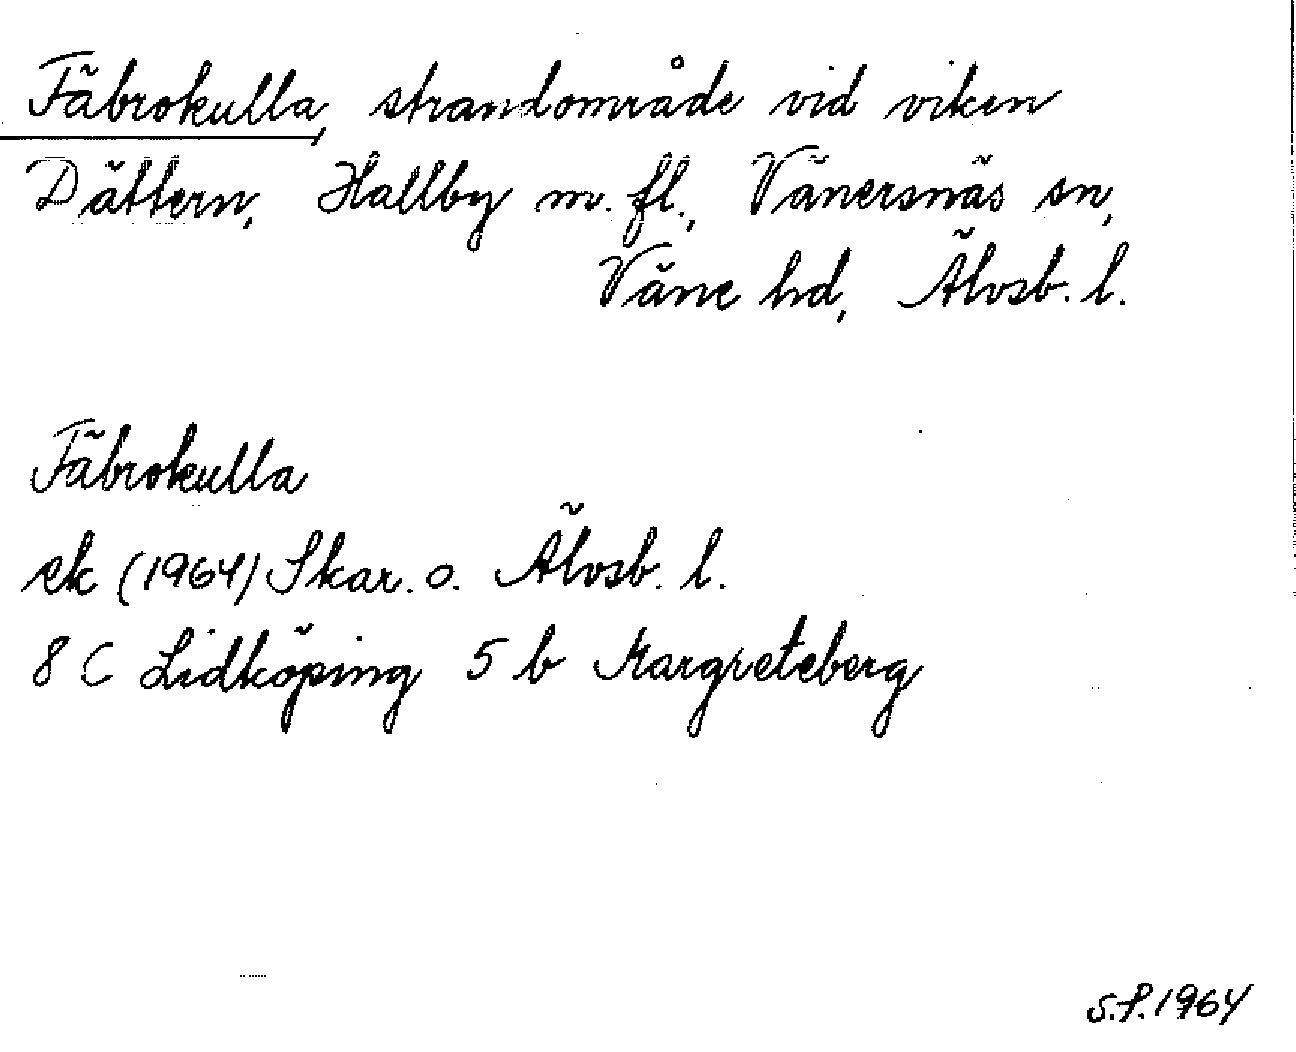 Fäbrokulla, strandområde vid viken
Dättern, Hallby m. fl., Vänersnäs sn,
Väne hd, Älvsb. l.
Fäbrokulla
ek (1964) Skar. o. Älvsb. l.
8 C Lidköping 5 b Margreteberg
S.P. 1964